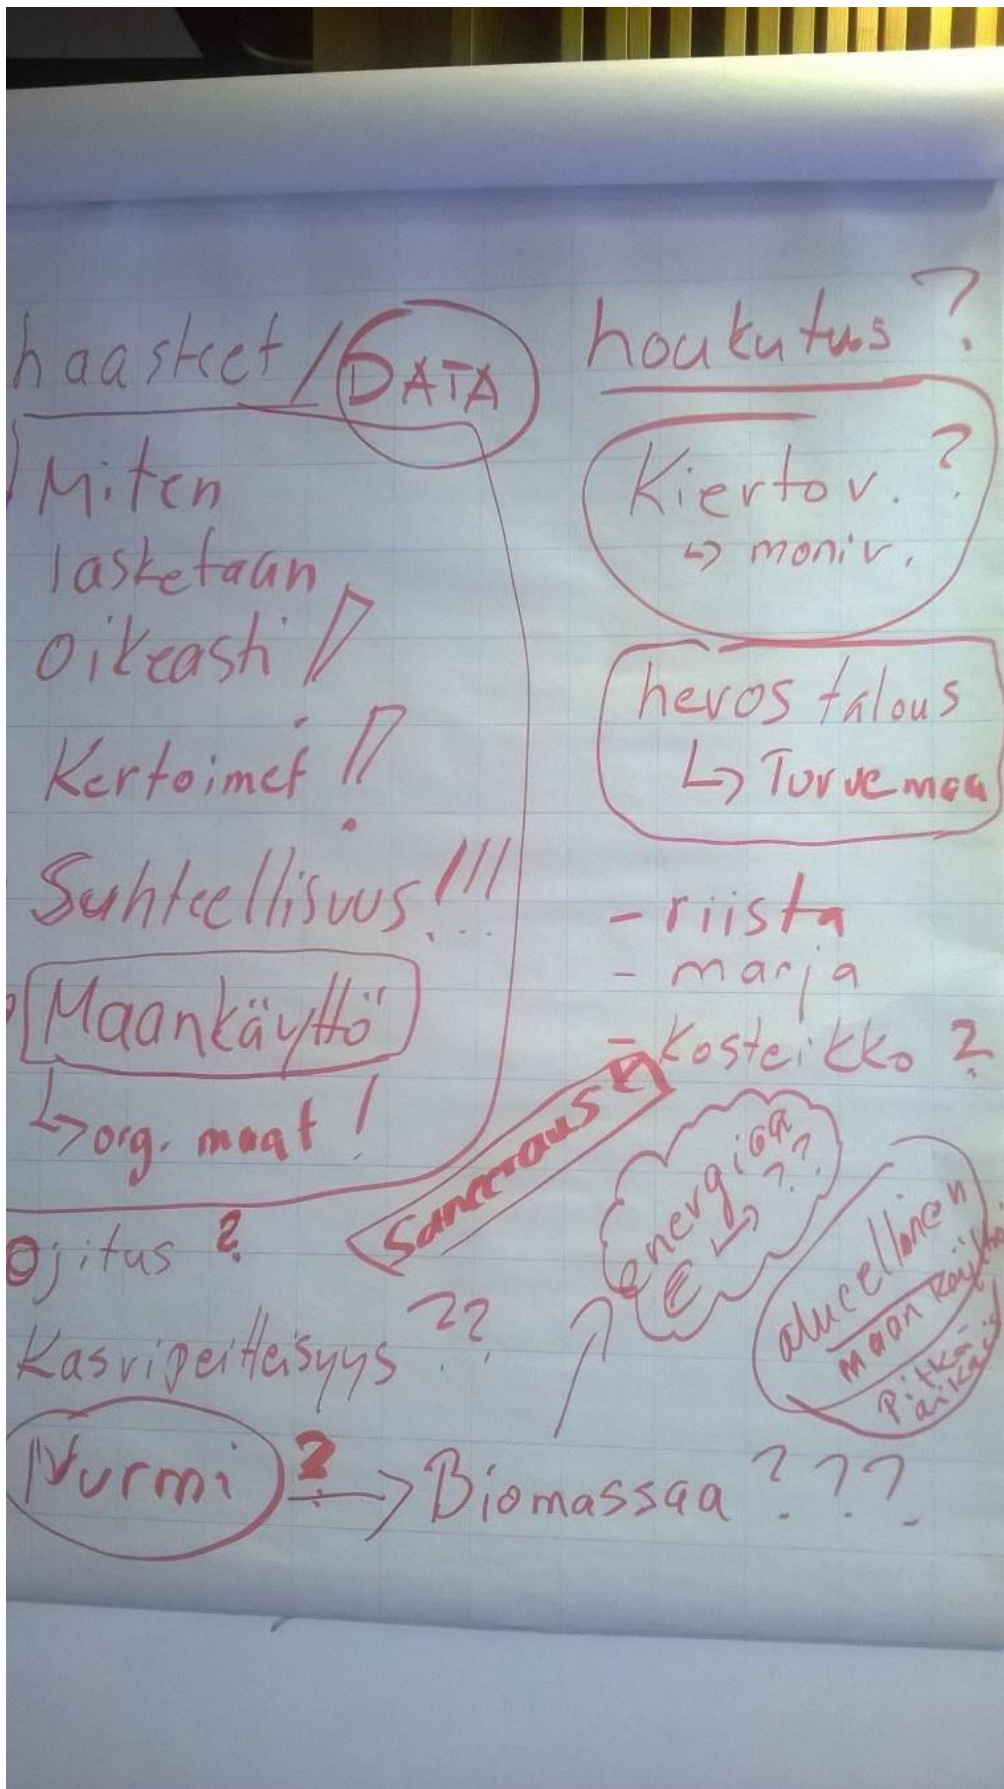 haasteet / DATA
Miten
lasketaan
oikeasti!
Kertoimet!!
Suhteellisuus!!!
Maankäyttö
↳ org. maat!
Ojitus ?
Kasvipeitteisyys ??
Nurmi ? → Biomassaa ???
houkutus ?
Kiertov. ?
↳ moniv.
hevostalous
↳ Turvemaa
- riista
- marja
- kosteikko ?
Saneeraus ?
energiaa
€ ↳ ??
alueellinen
maan käyttö
Pitkä-
aikais